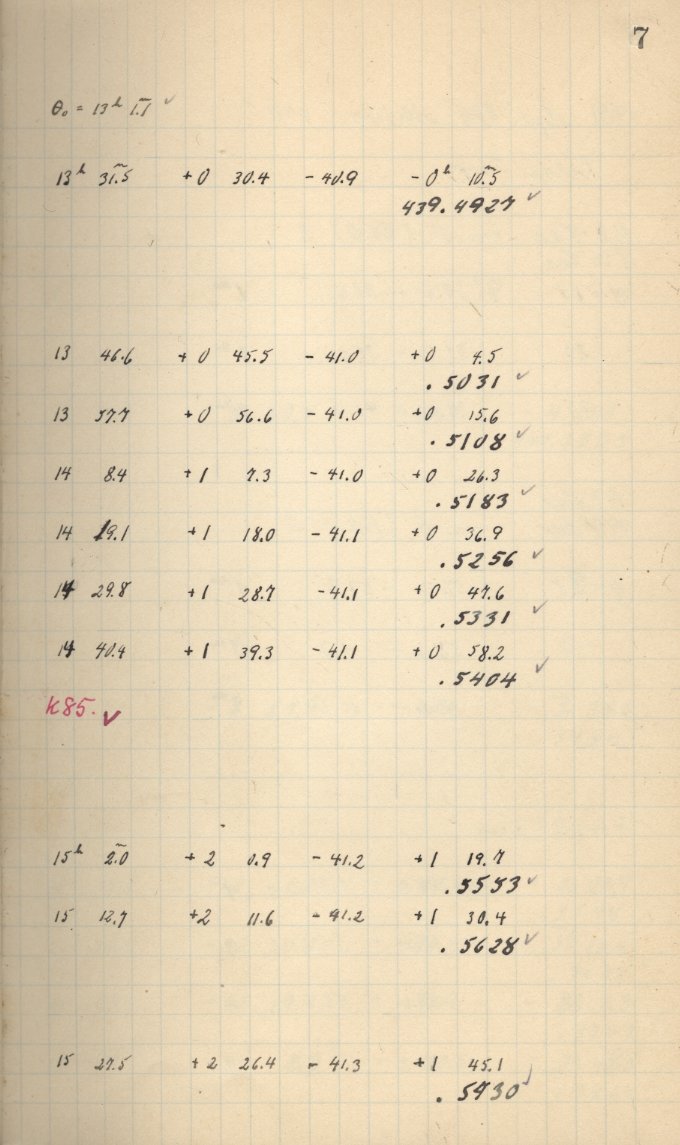 7
θ₀ = 13ʰ 1ᵐ.1 ✓
13ʰ 31ᵐ.5 +0 30.4 - 40.9 - 0ʰ 10ᵐ.5
439.4927 ✓
13 46.6 +0 45.5 - 41.0 +0 4.5
.5031 ✓
13 57.7 +0 56.6 - 41.0 +0 15.6
.5108 ✓
14 8.4 +1 7.3 - 41.0 +0 26.3
.5183 ✓
14 19.1 +1 18.0 - 41.1 +0 36.9
.5256 ✓
14 29.8 +1 28.7 - 41.1 +0 47.6
.5331 ✓
14 40.4 +1 39.3 - 41.1 +0 58.2
.5404 ✓
K85. ✓
15ʰ 2ᵐ.0 +2 0.9 - 41.2 +1 19.7
.5553 ✓
15 12.7 +2 11.6 - 41.2 +1 30.4
.5628 ✓
15 27.5 +2 26.4 - 41.3 +1 45.1
.5730 ✓